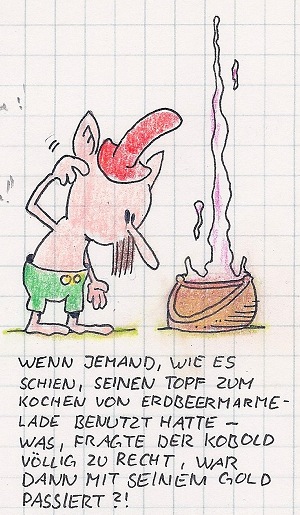 WENN JEMAND, WIE ES
SCHIEN, SEINEN TOPF ZUM
KOCHEN VON ERDBEERMARME-
LADE BENUTZT HATTE –
WAS, FRAGTE DER KOBOLD
VÖLLIG ZU RECHT, WAR
DANN MIT SEINEM GOLD
PASSIERT?!